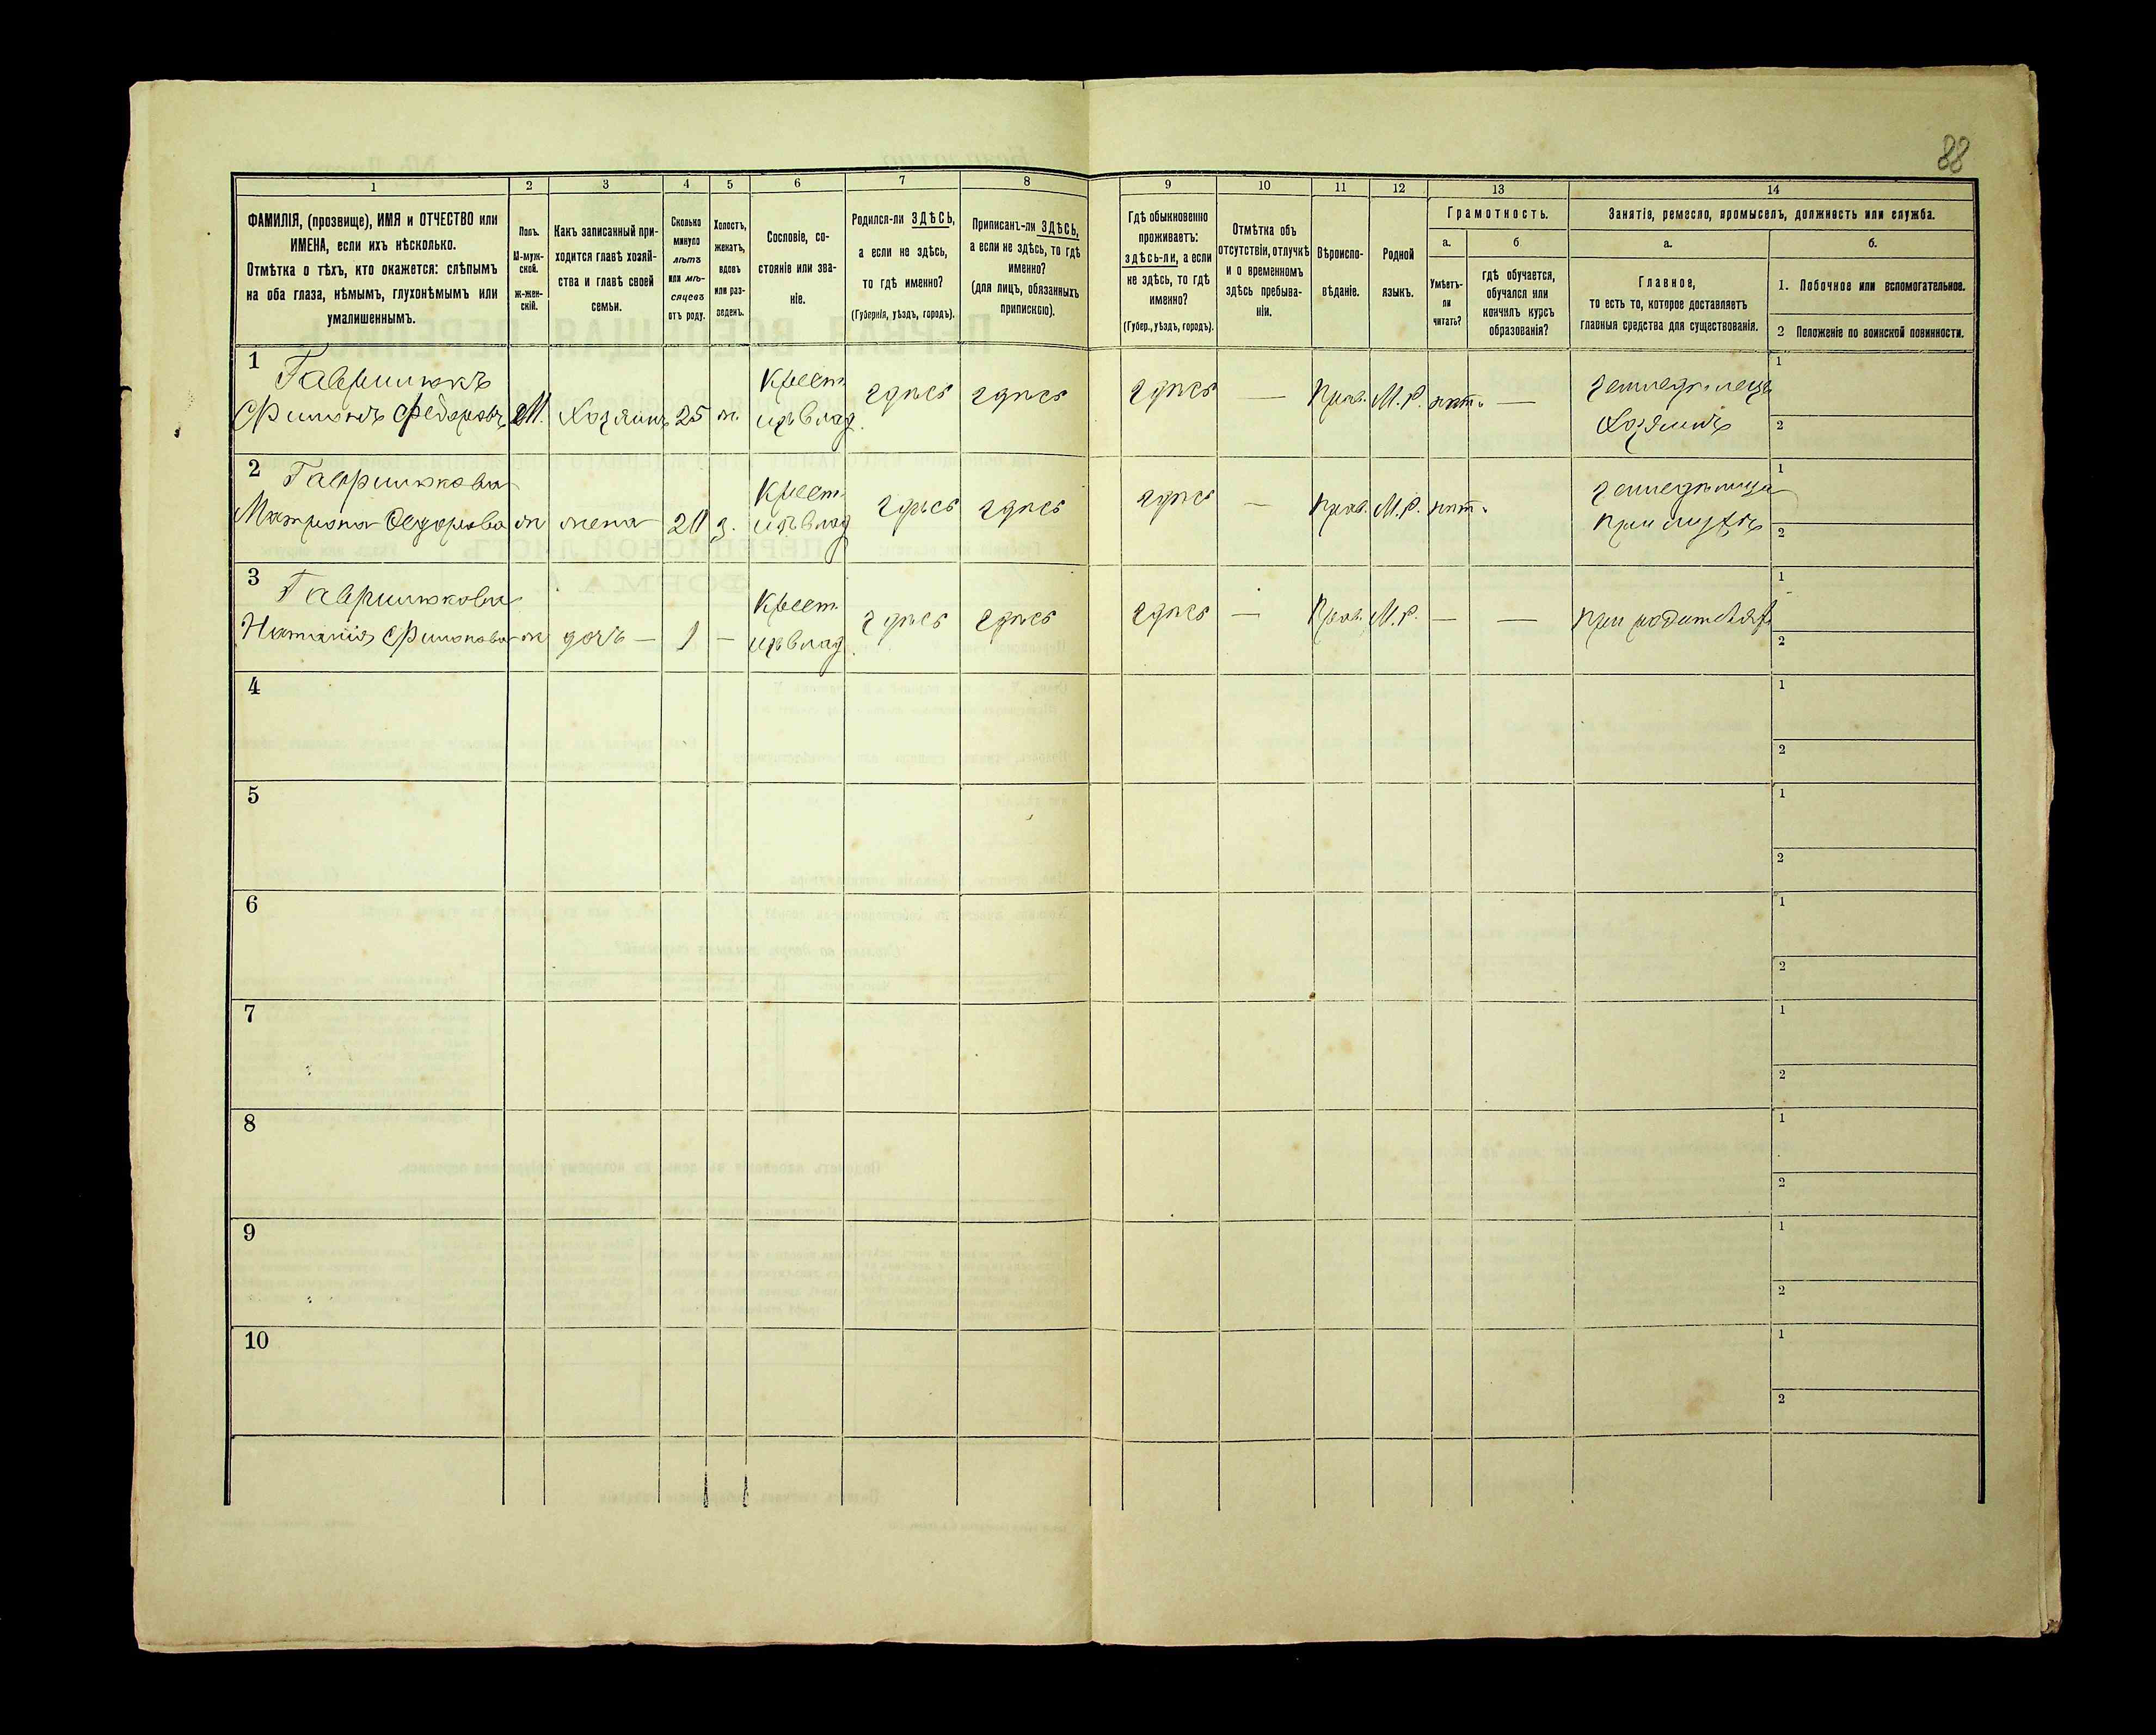 88
1 2 3 4 5 6 7 8 9 10 11 12 13 14
ФАМИЛІЯ, (прозвище), ИМЯ и ОТЧЕСТВО или
ИМЕНА, если ихъ нѣсколько.
Отмѣтка о тѣхъ, кто окажется: слѣпымъ
на оба глаза, нѣмымъ, глухонѣмымъ или
умалишеннымъ.
Полъ.
М-муж-
ской.
ж-жен-
скій.
Какъ записанный при-
ходится главѣ хозяй-
ства и главѣ своей
семьи.
Сколько
минуло
лѣтъ
или мѣ-
сяцевъ
отъ роду.
Холостъ,
женатъ,
вдовъ
или раз-
веденъ.
Сословіе, со-
стояніе или зва-
ніе.
Родился-ли ЗДѢСЬ,
а если не здѣсь,
то гдѣ именно?
(Губернія, уѣздъ, городъ).
Приписанъ-ли ЗДѢСЬ,
а если не здѣсь, то гдѣ
именно?
(для лицъ, обязанныхъ
припискою).
Гдѣ обыкновенно
проживаетъ:
здѣсь-ли, а если
не здѣсь, то гдѣ
именно?
(Губер., уѣздъ, городъ).
Отмѣтка объ
отсутствіи, отлучкѣ
и о временномъ
здѣсь пребыва-
ніи.
Вѣроиспо-
вѣданіе.
Родной
языкъ.
Грамотность.
а.
Умѣетъ-
ли
читать?
б
гдѣ обучается,
обучался или
кончилъ курсъ
образованія?
Занятіе, ремесло, промыселъ, должность или служба.
а.
Главное,
то есть то, которое доставляетъ
главныя средства для существованія.
б.
1. Побочное или вспомогательное.
2 Положеніе по воинской повинности.
1 Гаврилюкъ Крест. земледѣлецъ 1
Филимонъ Федоровъ М. Хозяинъ 25 ж. изъ влад. здѣсь здѣсь здѣсь — Прав. М.Р. нѣтъ — Хозяинъ 2
2 Гаврилюкова Крест. земледѣлица 1
Матрона Федорова ж жена 20 з. изъ влад здѣсь здѣсь здѣсь — Прав. М.Р. нѣтъ при мужѣ 2
3 Гаврилюкова Крест. 1
Наталия ж дочь — 1 — изъ влад. здѣсь здѣсь здѣсь — Прав. М.Р. — — При родителяхъ 2
4 1
2
5 1
2
6 1
2
7 1
2
8 1
2
9 1
2
10 1
2